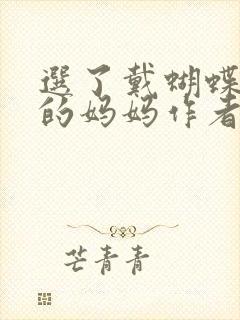 選了戴蝴蝶
的妈妈作者
芒青青